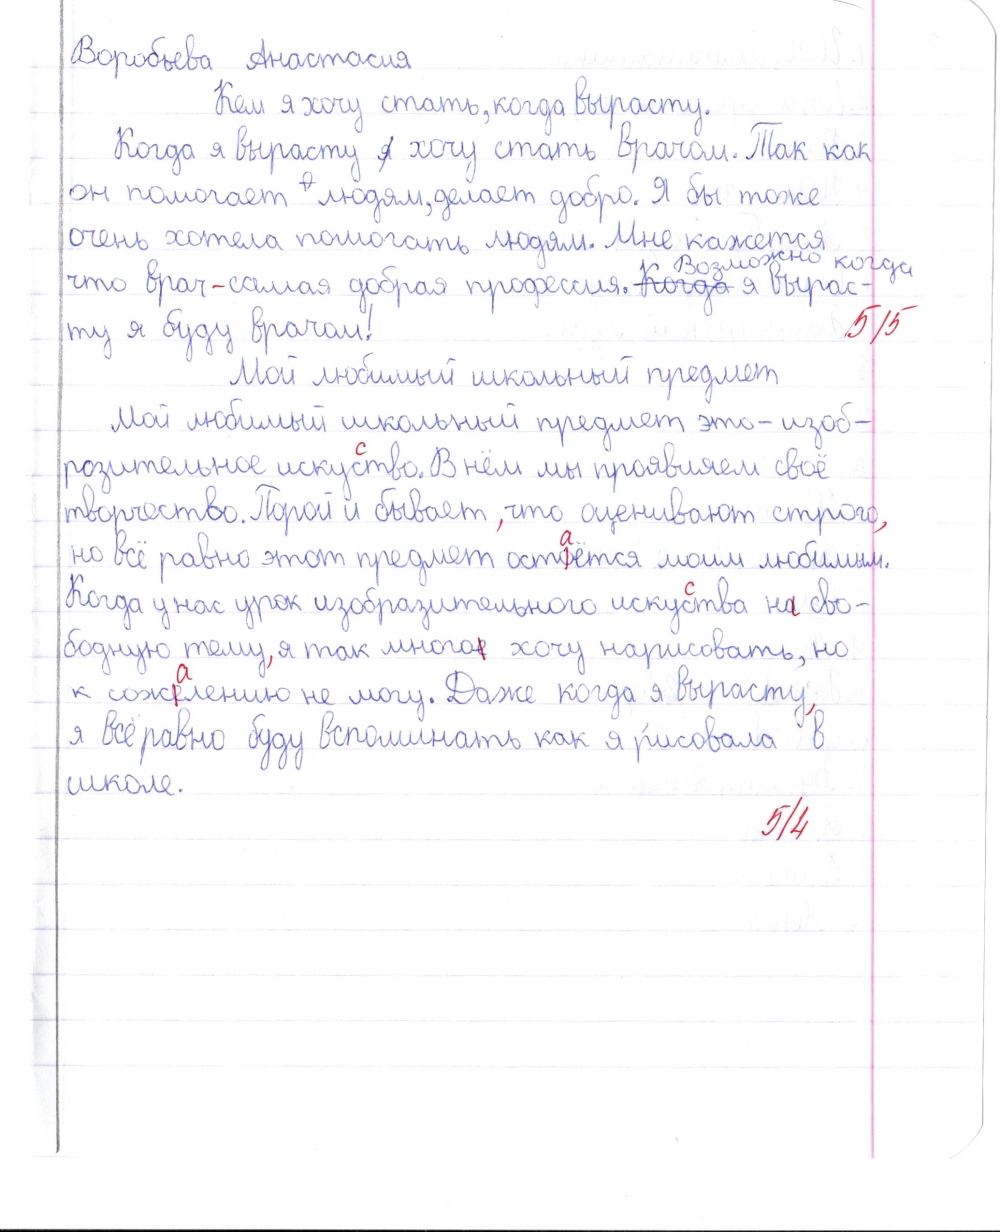 Воробьева Анастасия
Кем я хочу стать, когда вырасту.
Когда я вырасту я хочу стать врачом. Так как
он помогает людям, делает добро. Я бы тоже
очень хотела помогать людям. Мне кажется
Возможно когда
что врач-самая добрая профессия. Когда я вырас-
ту я буду врачом!
5/5
Мой любимый школьный предмет
Мой любимый школьный предмет это-изоб-
розительное искуство. В нём мы проявляем своё
с
творчество. Порой и бывает, что оценивают строго,
но всё равно этот предмет остаётся моим любимым.
Когда у нас урок изобразительного искусства на сво-
бодную тему, я так много хочу нарисовать, но
к сожалению не могу. Даже когда я вырасту,
я всё равно буду вспоминать как я рисовала в
школе.
5/4